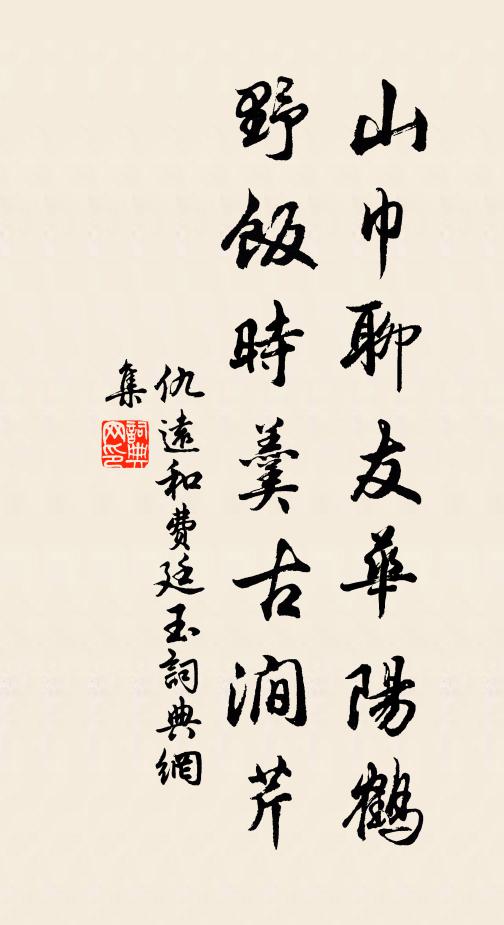 山巾聊友華陽鶴
野飯時羹古澗芹
仇遠和費廷玉詞典網
集
詞典网印